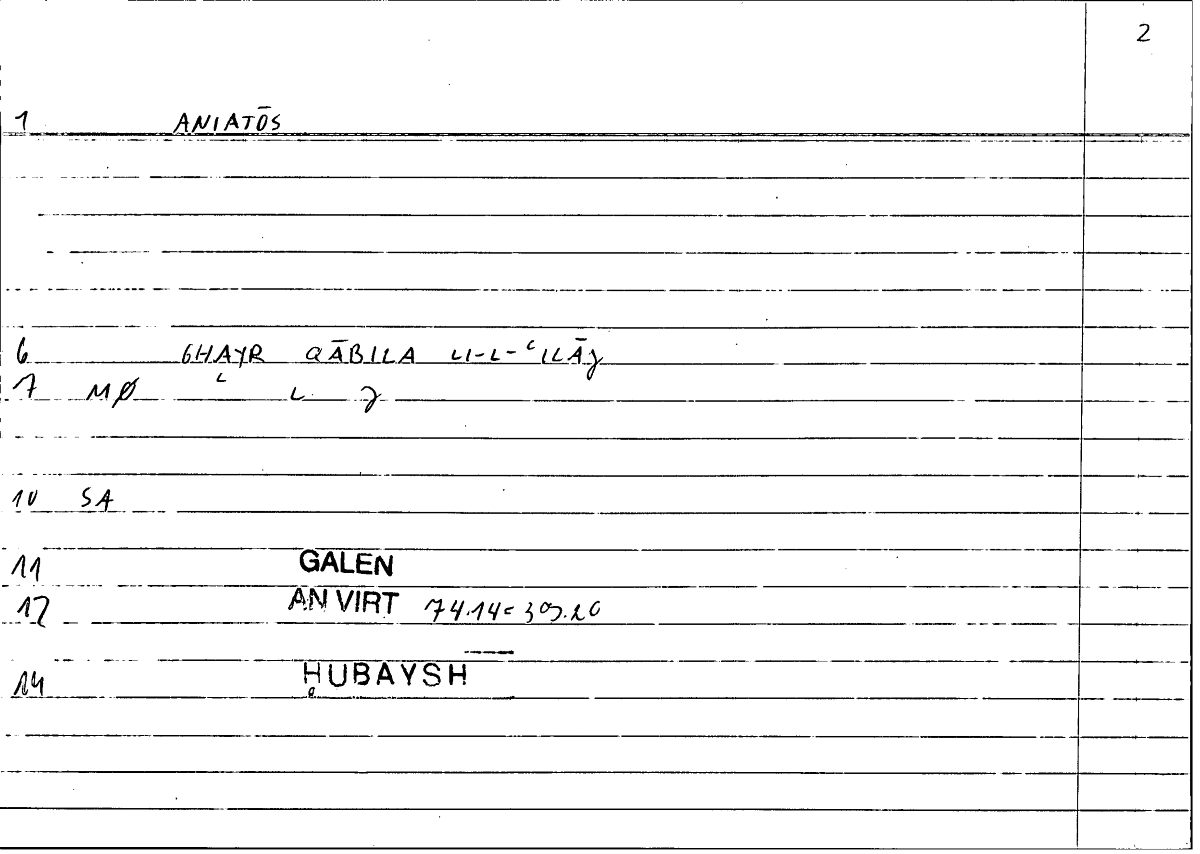 2
1 ANIATŌS
6 GHAYR QĀBILA LI-L-ʿILĀJ
7 MØ L L J
10 SA
11 GALEN
12 AN VIRT 74.14= 309.20
14 ḤUBAYSH